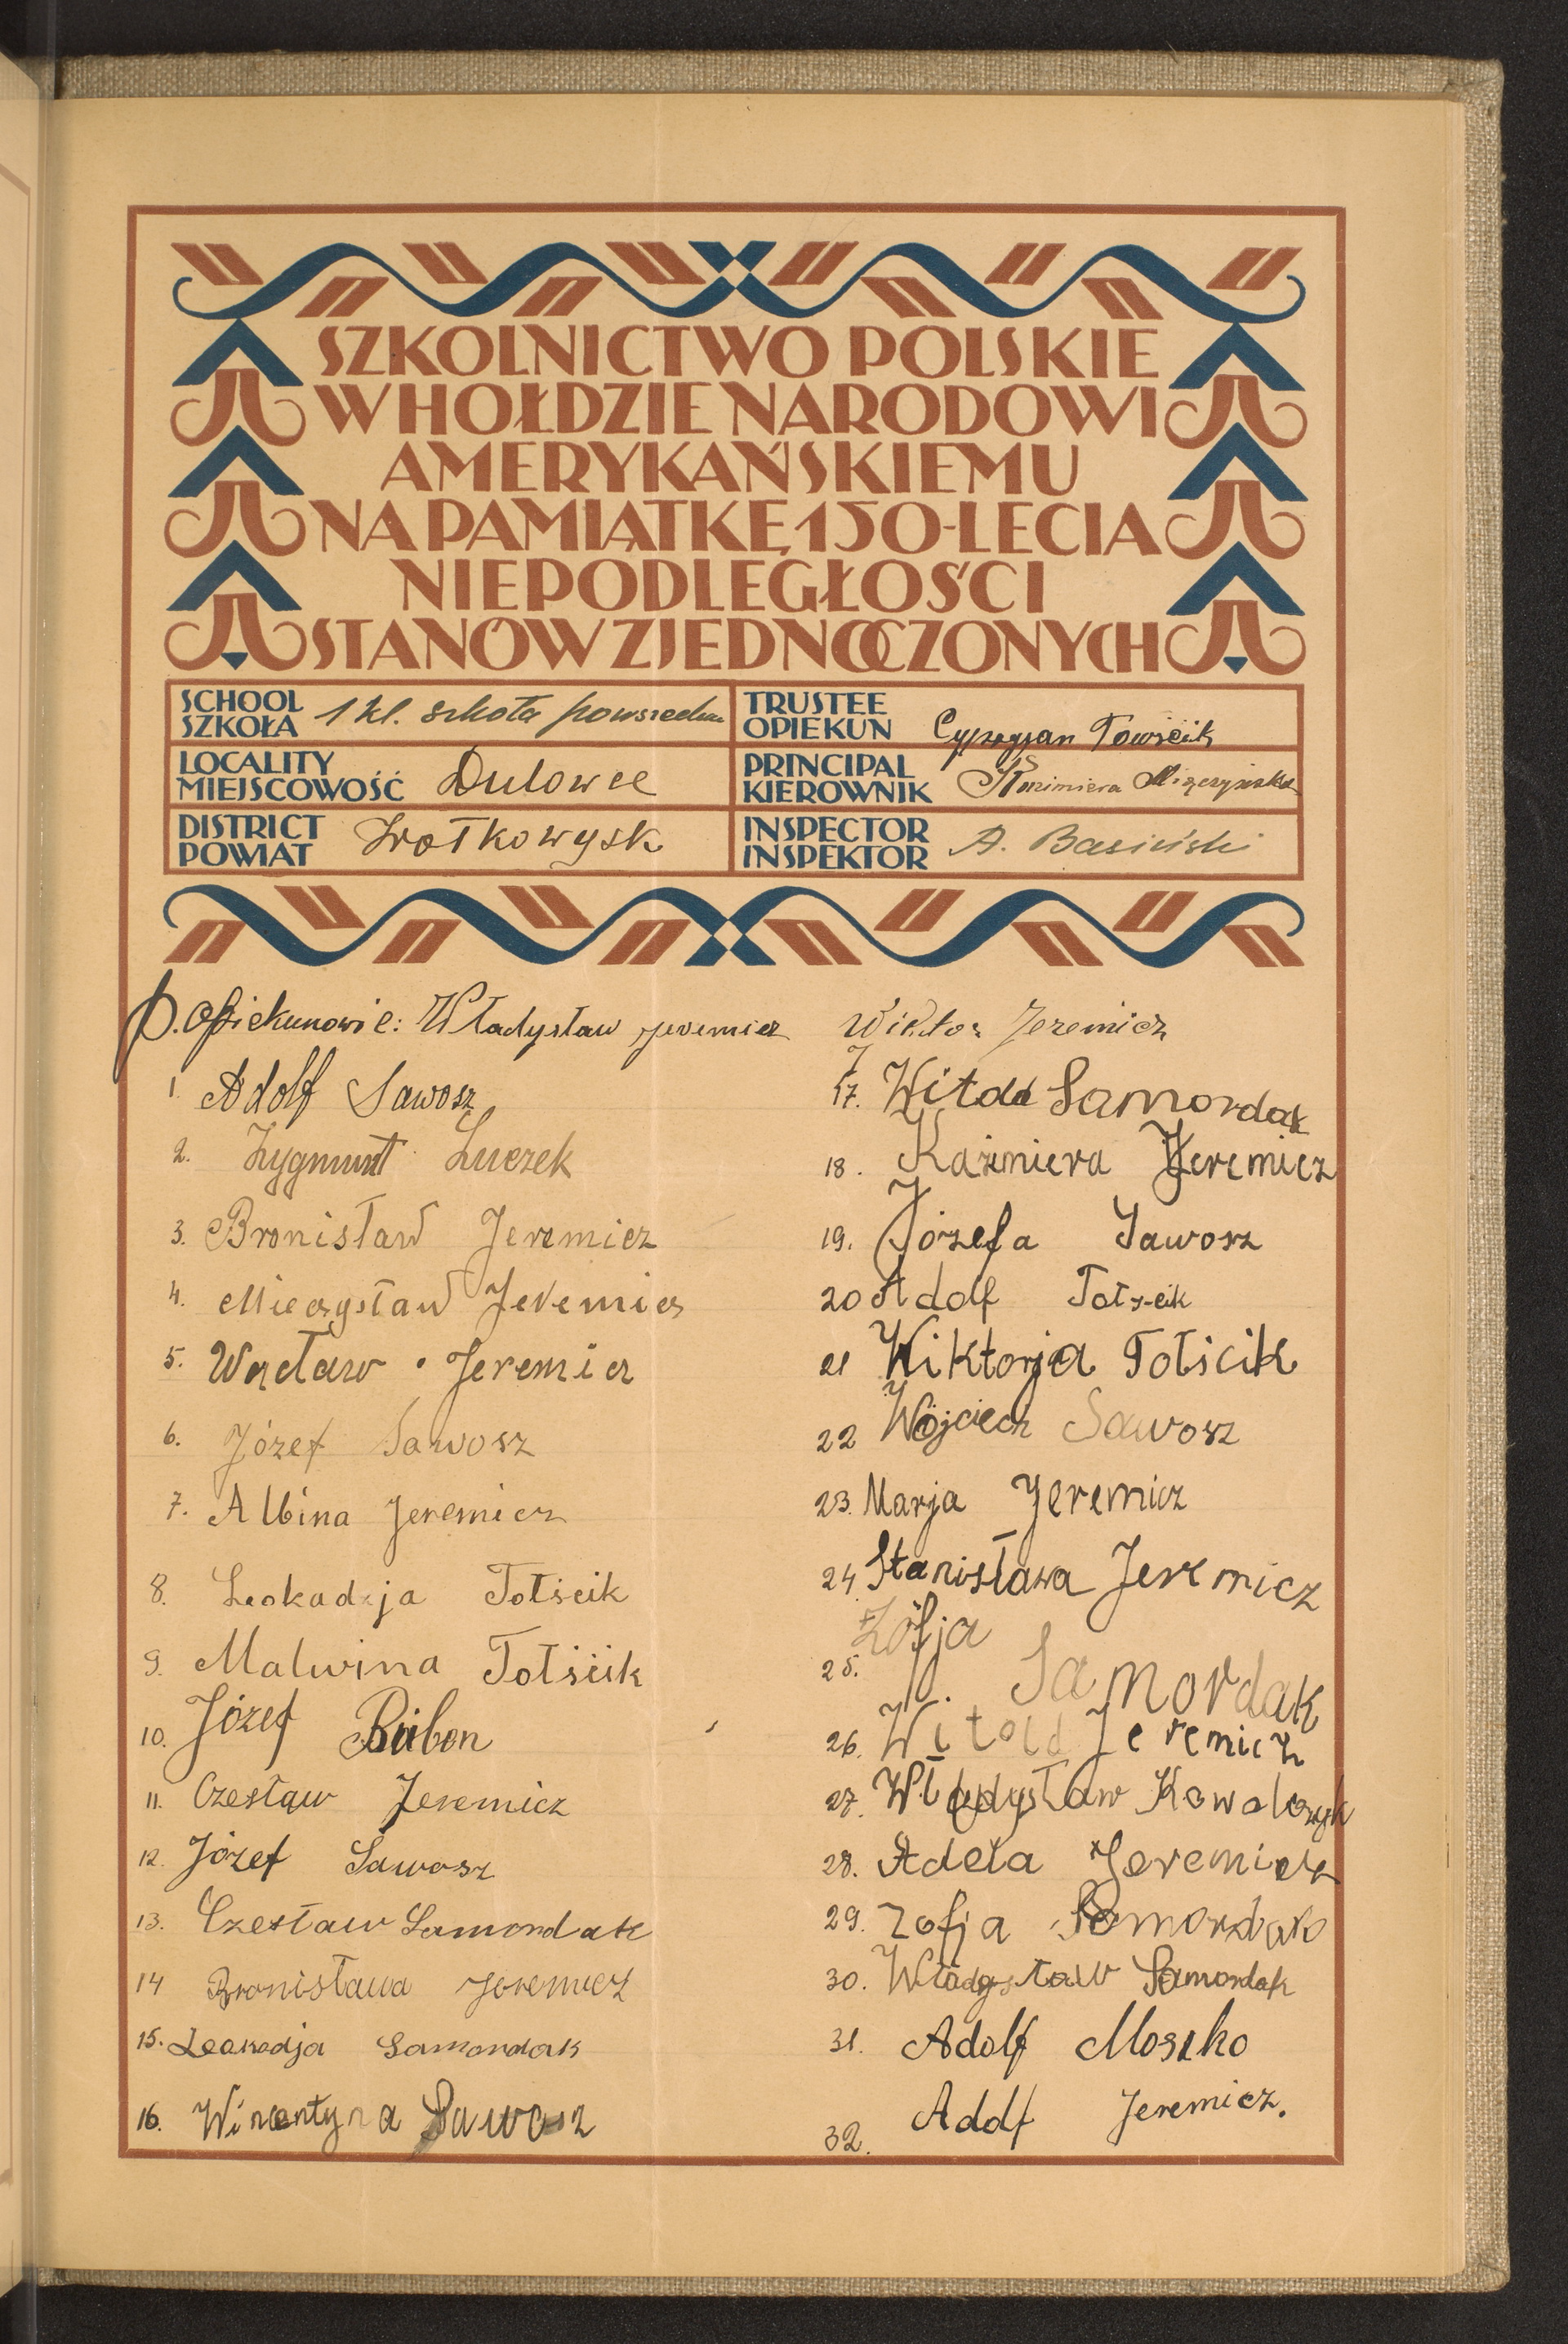 SZKOLNICTWO POLSKIE
W HOŁDZIE NARODOWI
AMERYKAŃSKIEMU
NA PAMIĄTKĘ 150-LECIA
NIEPODLEGŁOŚCI
STANÓW ZJEDNOCZONYCH
SCHOOL
SZKOŁA 1 kl. szkoła powszechna
TRUSTEE
OPIEKUN Cypryjan
LOCALITY
MIEJSCOWOŚĆ Dulowce
PRINCIPAL
KIEROWNIK
DISTRICT
POWIAT Wołkowysk
INSPECTOR
INSPEKTOR A. Basiński
P. Opiekunowie: Władysław Jeremicz Wiktor Jeremicz
1. Adolf Sawosz
2. Zygmunt Luczek
3. Bronisław Jeremicz
4. Mieczysław Jeremicz
5. Wacław Jeremicz
6. Józef Sawosz
7. Albina Jeremicz
8. Leokadja Tołścik
9. Malwina Tołścik
10. Józef
11. Czesław Jeremicz
12. Józef Sawosz
13. Czesław Samordak
14 Bronisława Jeremicz
15. Leokadja Samordak
16. Wincentyna Sawosz
17. Witold Samordak
18. Kaźmiera Jeremicz
19. Józefa Sawosz
20 Adolf Tołścik
21 Wiktorja Tołścik
22 Wojciech Sawosz
23. Marja Jeremicz
24. Stanisława Jeremicz
25. Zofja Samordak
26. Witold Jeremicz
27. Władysław Kowalczyk
28. Adela Jeremicz
29. Zofja Samordak
30. Władysław Samordak
31. Adolf Moszko
32. Adolf Jeremicz.